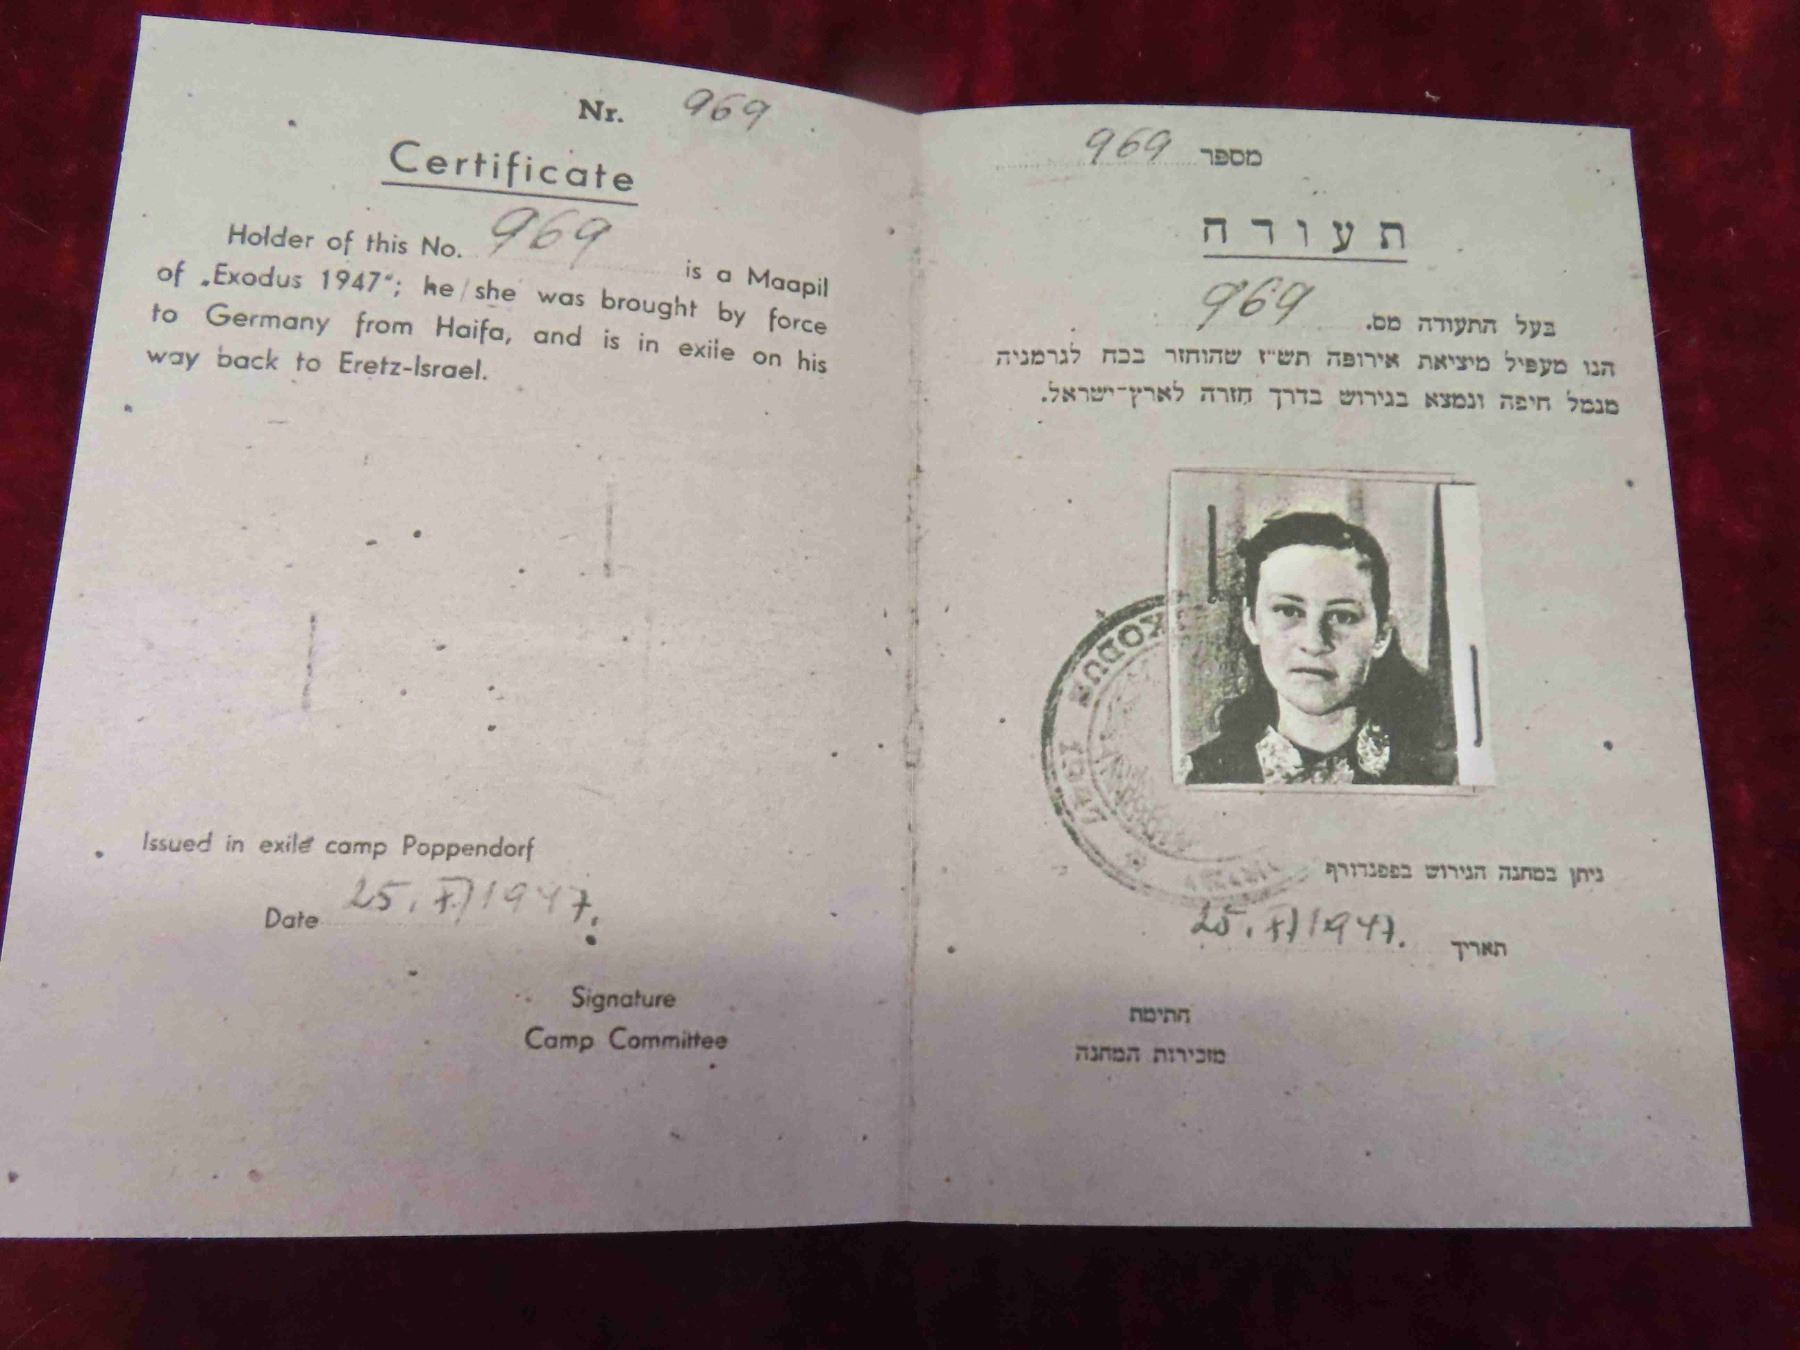 Nr. 969
Certificate
Holder of this No. 969 is a Maapil
of „Exodus 1947“; he/she was brought by force
to Germany from Haifa, and is in exile on his
way back to Eretz-Israel.
Issued in exile camp Poppendorf
Date 25. XI/1947.
Signature
Camp Committee
מספר 969
תעודה
בעל התעודה מס. 969
הנו מעפיל מיציאת אירופה תש״ז שהוחזר בכח לגרמניה
מנמל חיפה ונמצא בגירוש בדרך חזרה לארץ־ישראל.
EXODUS 1947
ניתן במחנה הגירוש בפפנדורף
תאריך 25. XI/1947.
חתימת
מזכירות המחנה